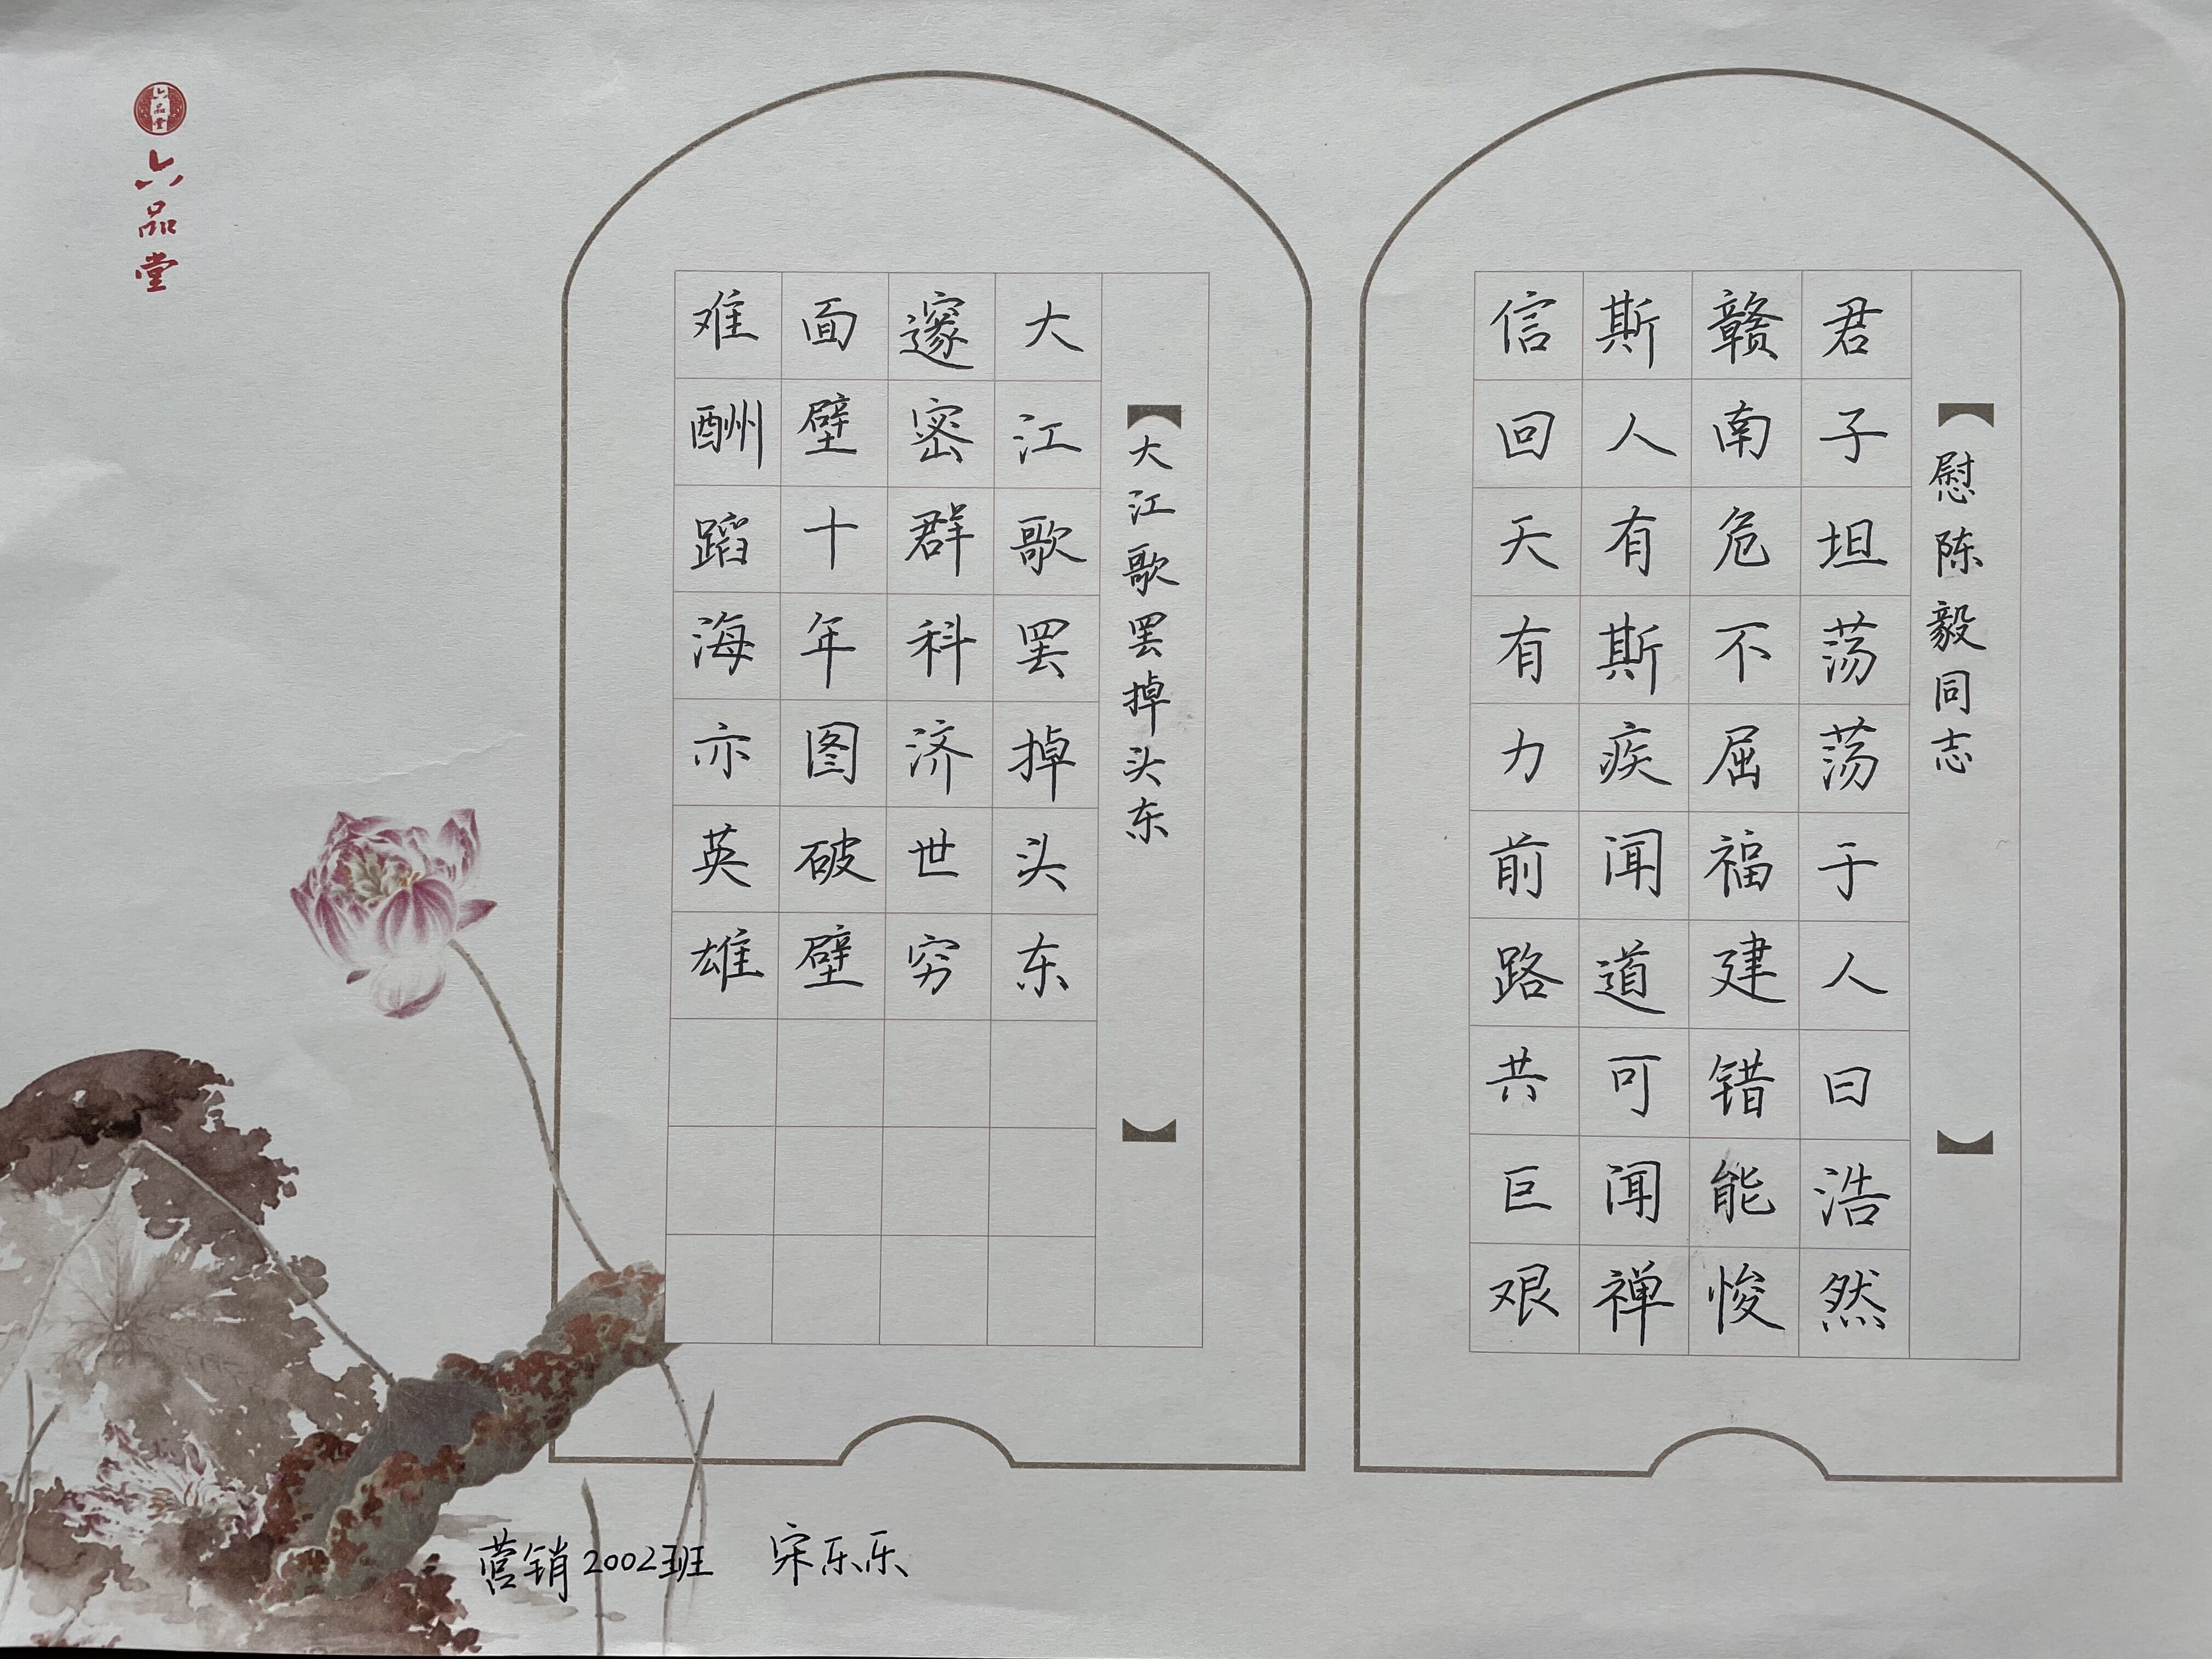 慰陈毅同志
君子坦荡荡于人曰浩然
赣南危不屈福建错能悛
斯人有斯疾闻道可闻禅
信回天有力前路共巨艰
大江歌罢掉头东
大江歌罢掉头东
邃密群科济世穷
面壁十年图破壁
难酬蹈海亦英雄
六品堂
六品堂
营销2002班 宋乐乐